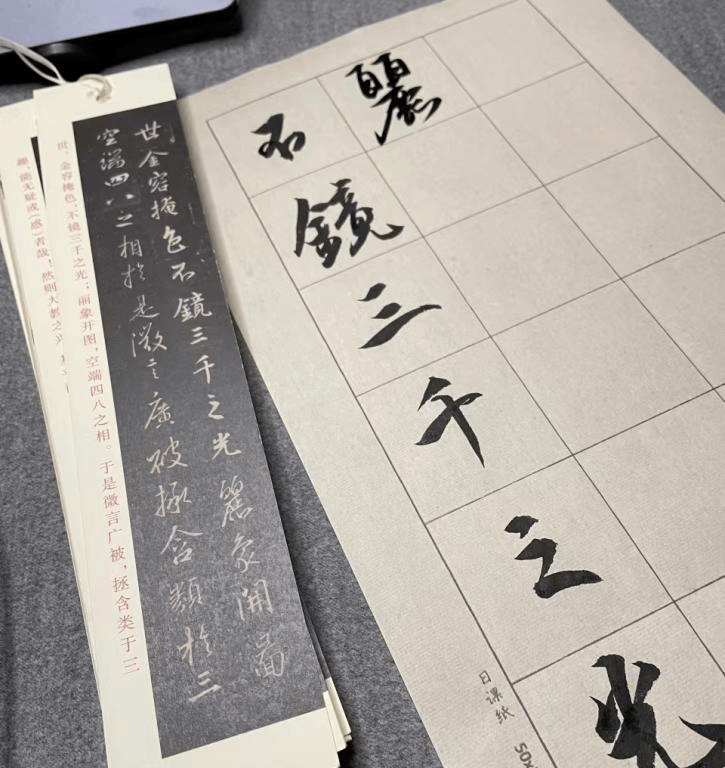 世金容掩色不鏡三千之光麗象開圖
空端四八之相於是微言廣被拯含類於三
世，金容掩色，不镜三千之光；丽象开图，空端四八之相。于是微言广被，拯含类于三
趣，能无疑或（惑）者哉！然则大教之兴
不鏡三千之光
麗
日课纸